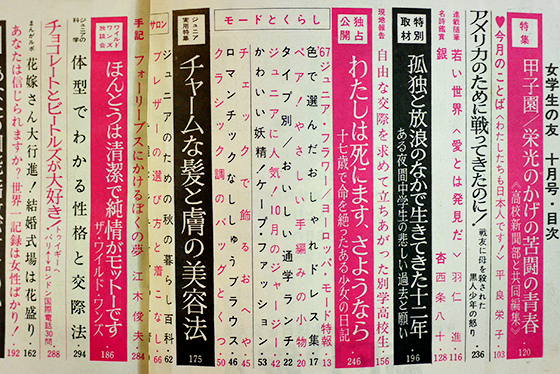 女学生の友 十月号 目次
特集
甲子園/栄光のかげの苦闘の青春
《高校新聞部と共同編集》
120
♥今月のことば〈わたしたちも日本人です〉平良栄子
103
アメリカのために戦ってきたのに!
戦友に母を殺された
黒人少年の怒り
236
連載随筆
若い世界〈愛とは発見だ〉羽仁進
116
名詩鑑賞
銀
杏 西条八十
128
特別取材
孤独と放浪のなかで生きてきた十二年
ある夜間中学生の悲しい過去と願い
196
現地報告
自由な交際を求めて立ちあがった別学高校生
156
独占公開
わたしは死にます、さようなら
十七歳で命を絶ったある少女の日記
246
モードとくらし
'67ジュニアフラワー/ヨーロッパモード特報
13
色で選んだおしゃれドレス集
17
ペア!やさしい手編みの小物
20
タイプ別/おしゃれ通学ランチ
22
ジュニアに人気!10月のジャージー
42
かわいい妖精!ケープ・ファッション
53
ロマンチックなししゅうブラウス
46
クラシック調のバッグと
50
時計を飾るおへや
45
ジュニア実用特集
チャームな髪と膚の美容法
175
サロン
ジュニアのための秋の暮らし百科
62
ブレザーの選び方と着こなし
66
手記
フォーリーブスにかけるぼくの夢
江木俊夫
284
ワイルドワンズ放談会
ほんとうは清潔で純情がモットーです
ザ・ワイルド・ワンズ
186
ジュニアの科学
体型でわかる性格と交際法
294
チョコレートとビートルズが大好き!
トゥイギー
パリ↔ロンドン国際電話30問
288
まんがルポ
花嫁さん大行進!結婚式場は花盛り
162
あなたは信じられますか?世界一記録は女性ばかり!
192